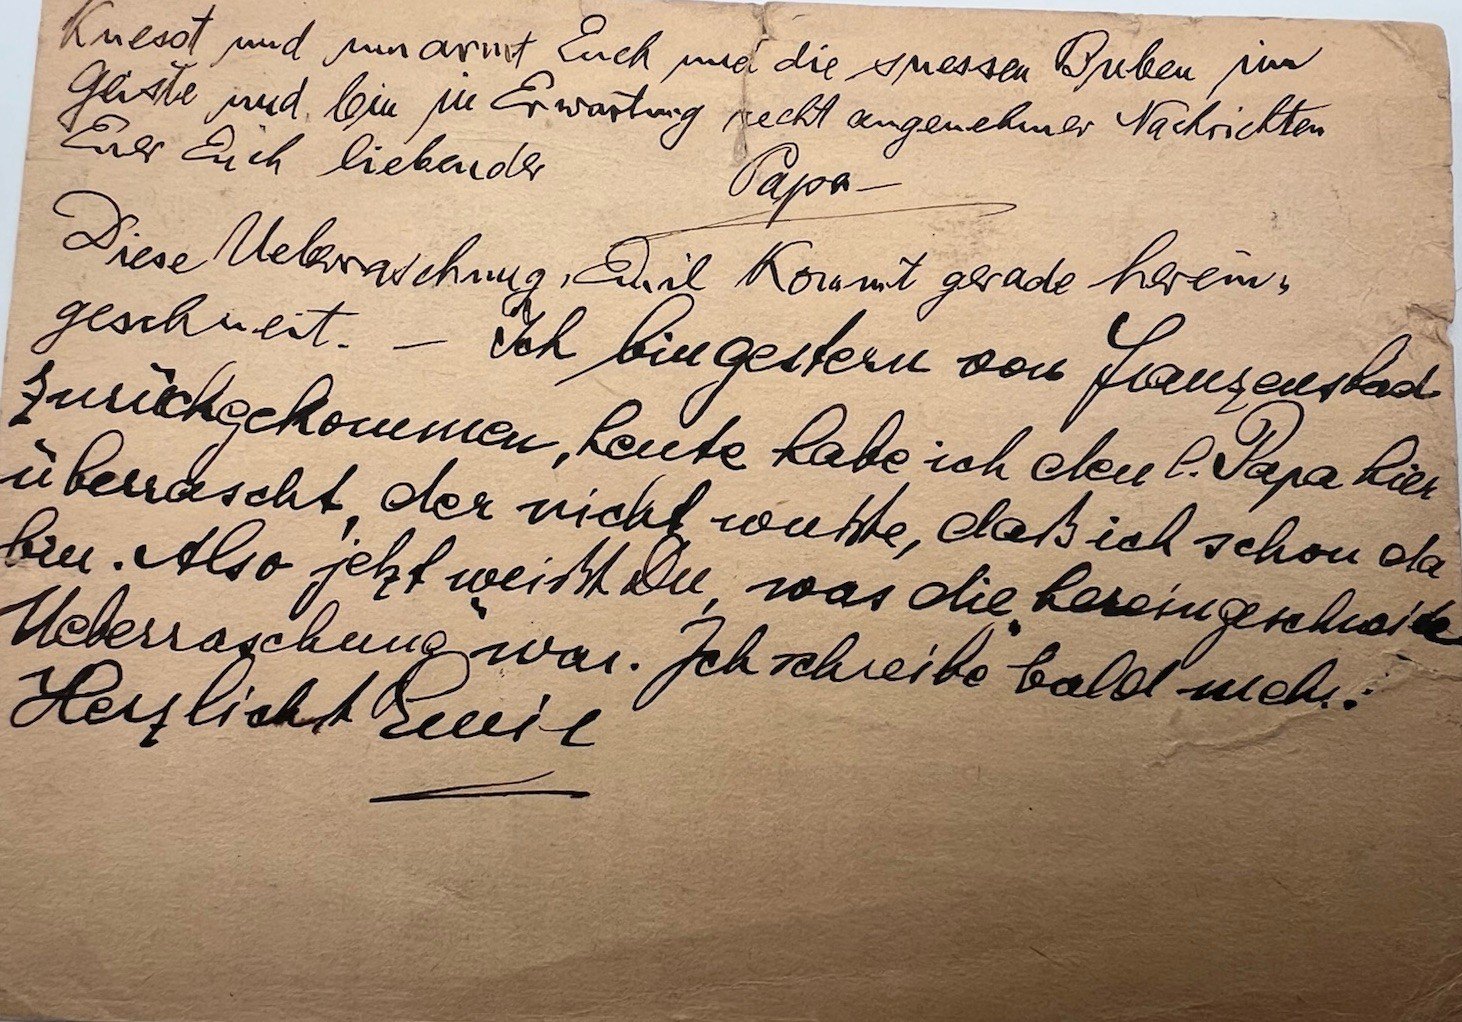 Kuesst und umarmt Euch und die suessen Buben im
Geiste und bin in Erwartung recht angenehmer Nachrichten
Euer Euch liebender Papa –
Diese Ueberraschung, Emil kommt gerade herein„
geschneit. – Ich bin gestern von Franzensbad
zurückgekommen, heute habe ich den l. Papa hier
überrascht, der nicht wußte, daß ich schon da
bin. Also jetzt weißt Du, was die „hereingeschneite
Ueberraschung" war. Ich schreibe bald mehr.
Herzlichst Emil